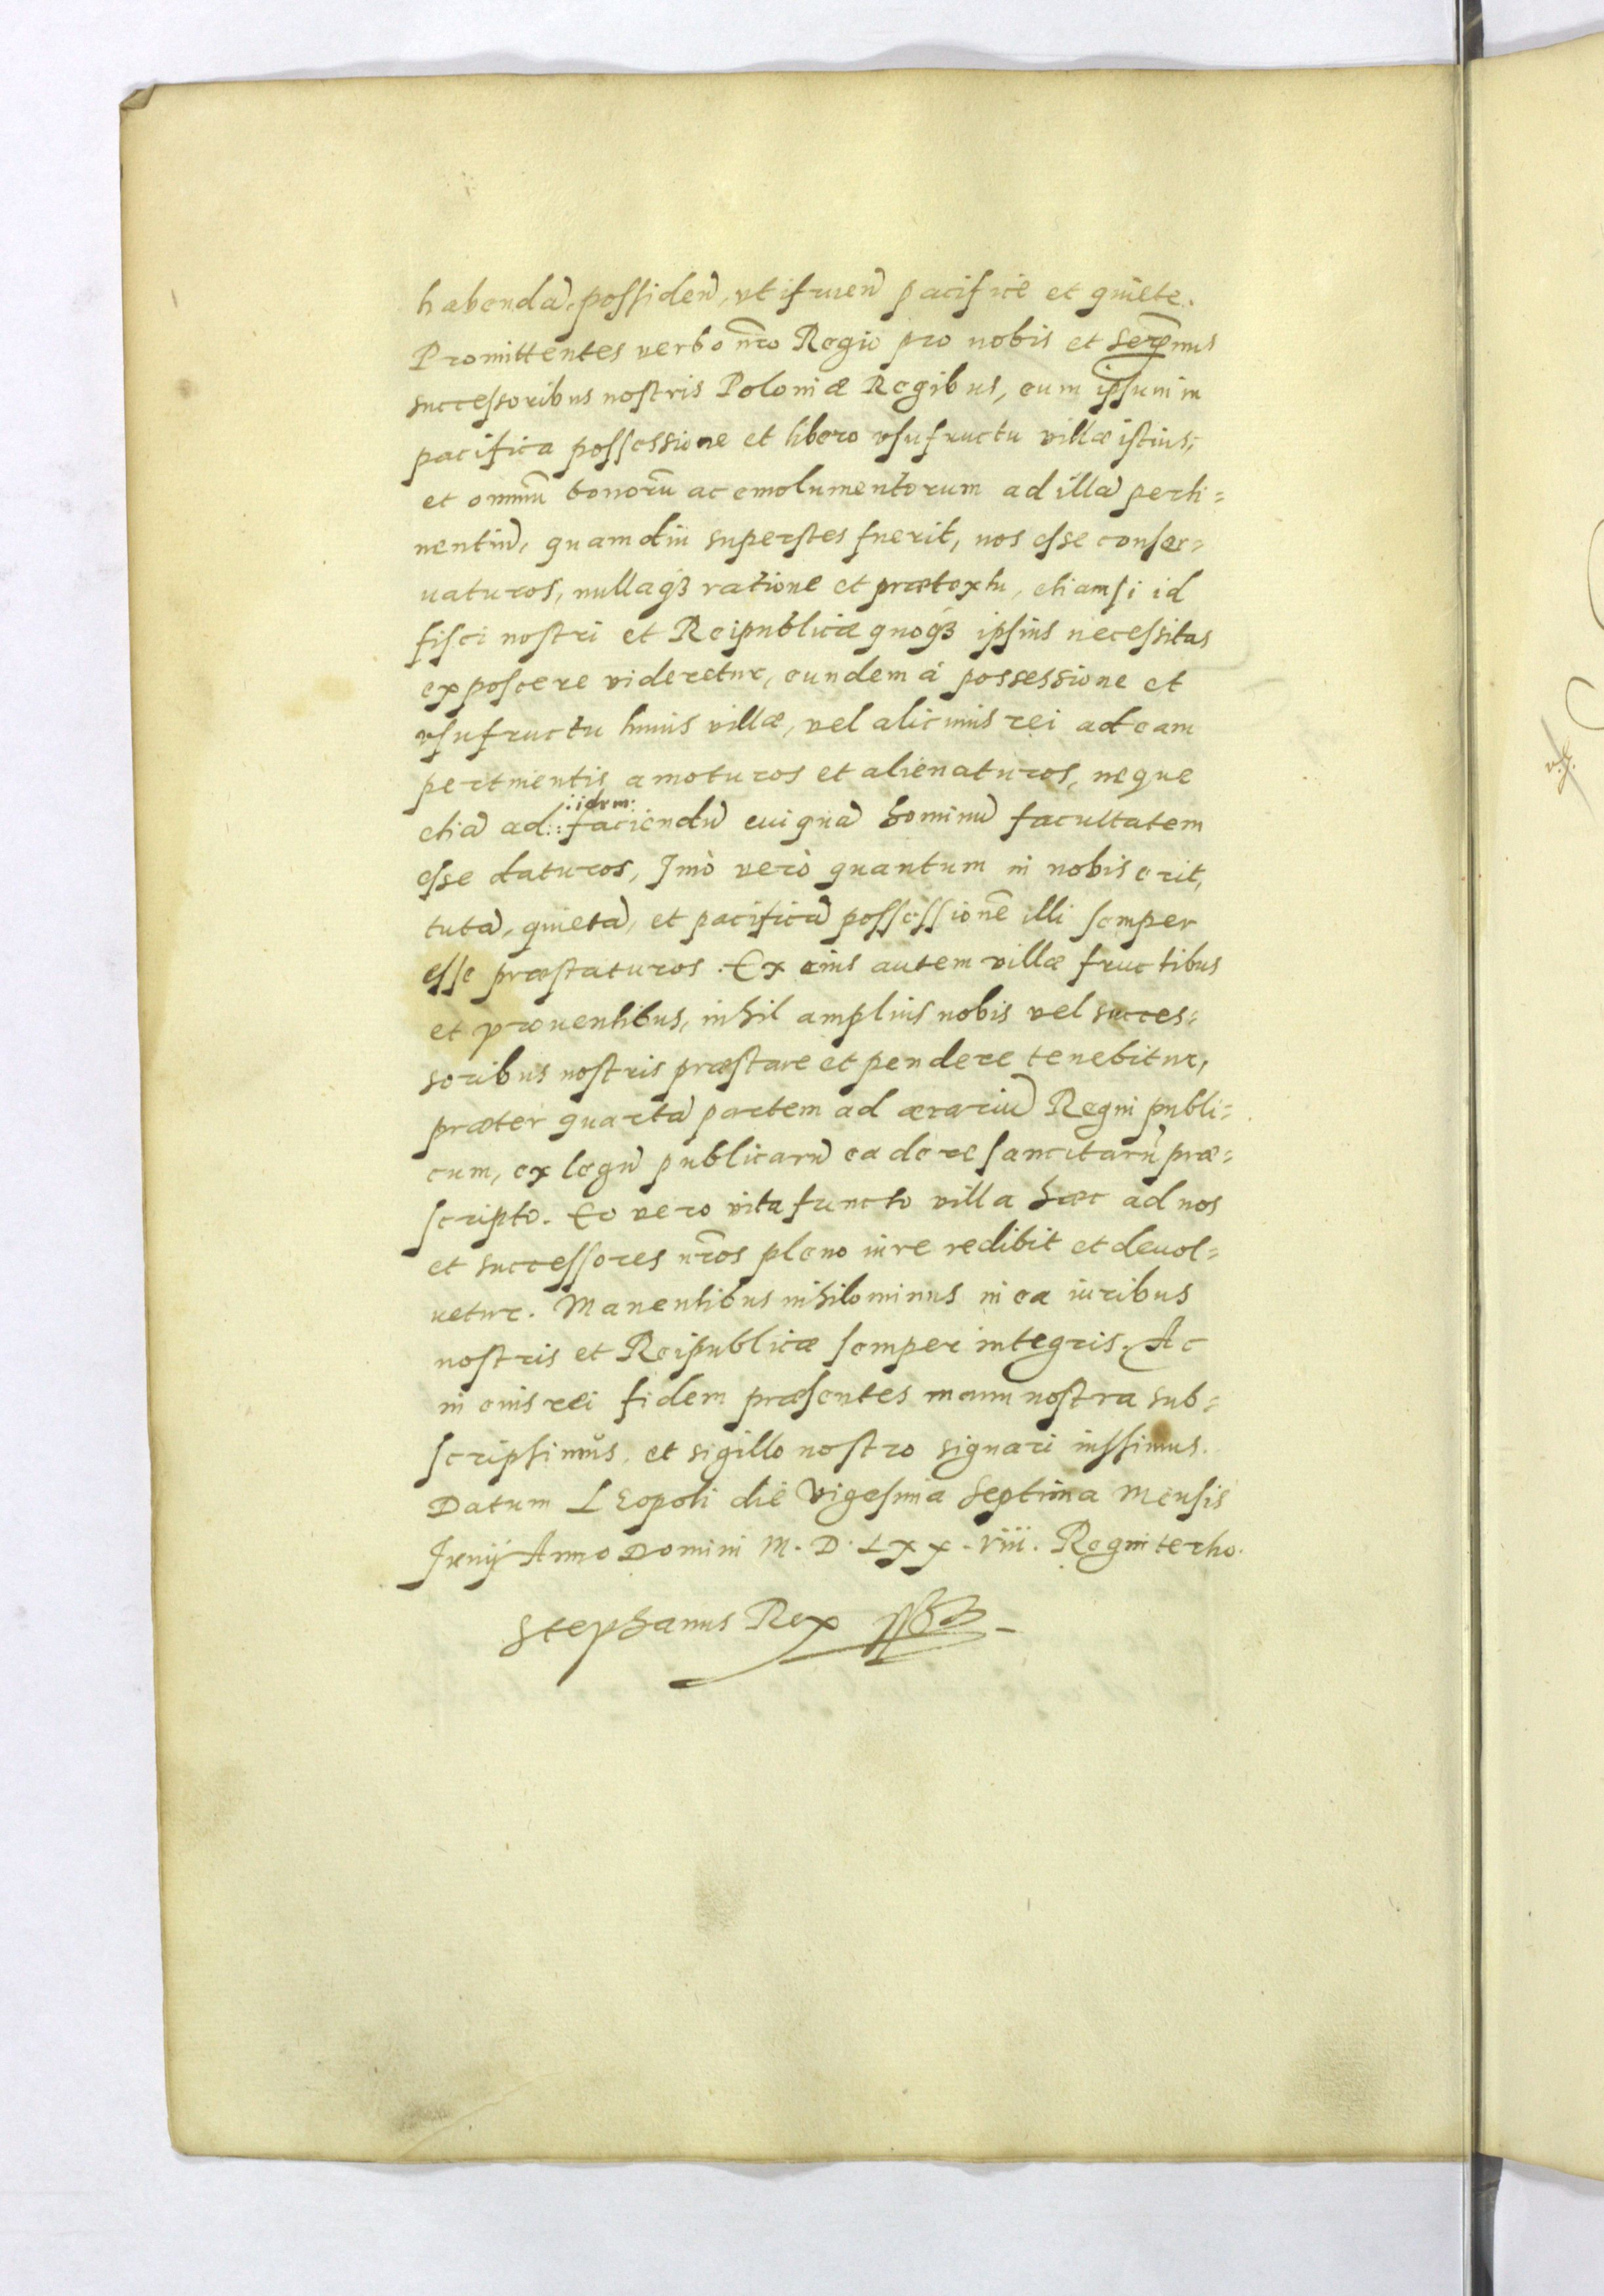 habendã, possideñ, utifrueñ pacifice et quiete.
Promittentes verbo nr̃o Regio pro nobis et Serẽnus
successoribus nostris Poloniæ Regibus, eum ipsum in
pacifica possessione et libero usufructu villæ istius,
et omniũ bonorũ ac emolumentorum ad illã perti=
nentiũ, quamdiu superstes fuerit, nos esse conser=
uaturos, nullaqȝ ratione et prætextu, etiamsi id
fisci nostri et Reipublicæ quoqȝ ipsius necessitas
exposcere videretur, eundem à possessione et
usufructu huius villæ, vel alicuius rei ad eam
pertinentis amoturos et alienaturos, neque
:idem:
etiã ad :: faciendũ cuiquã hominũ facultatem
esse daturos, Imò verò quantum in nobis erit,
tutã, quietã, et pacificã possessionẽ illi semper
esse præstaturos. Ex eius autem villæ fructibus
et prouentibus, nihil amplius nobis vel succes=
soribus nostris præstare et pendere tenebitur,
præter quartã partem ad ærariũ Regni publi=
cum, ex legũ publicarũ ea de re sancitarũ præ=
scripto. Eo vero vita functo villa hæc ad nos
et successores nr̃os pleno iure redibit et deuol=
uetur. Manentibus nihilominus in ea iuribus
nostris et Reipublicæ semper integris. Ac
in euis rei fidem præsentes manu nostra sub=
scripsimus, et sigillo nostro signari iussimus.
Datum LEopoli die Vigesima Septima Mensis
Iunij Anno Domini M. D. LXX. viii. Regni tertio.
Stephanus Rex